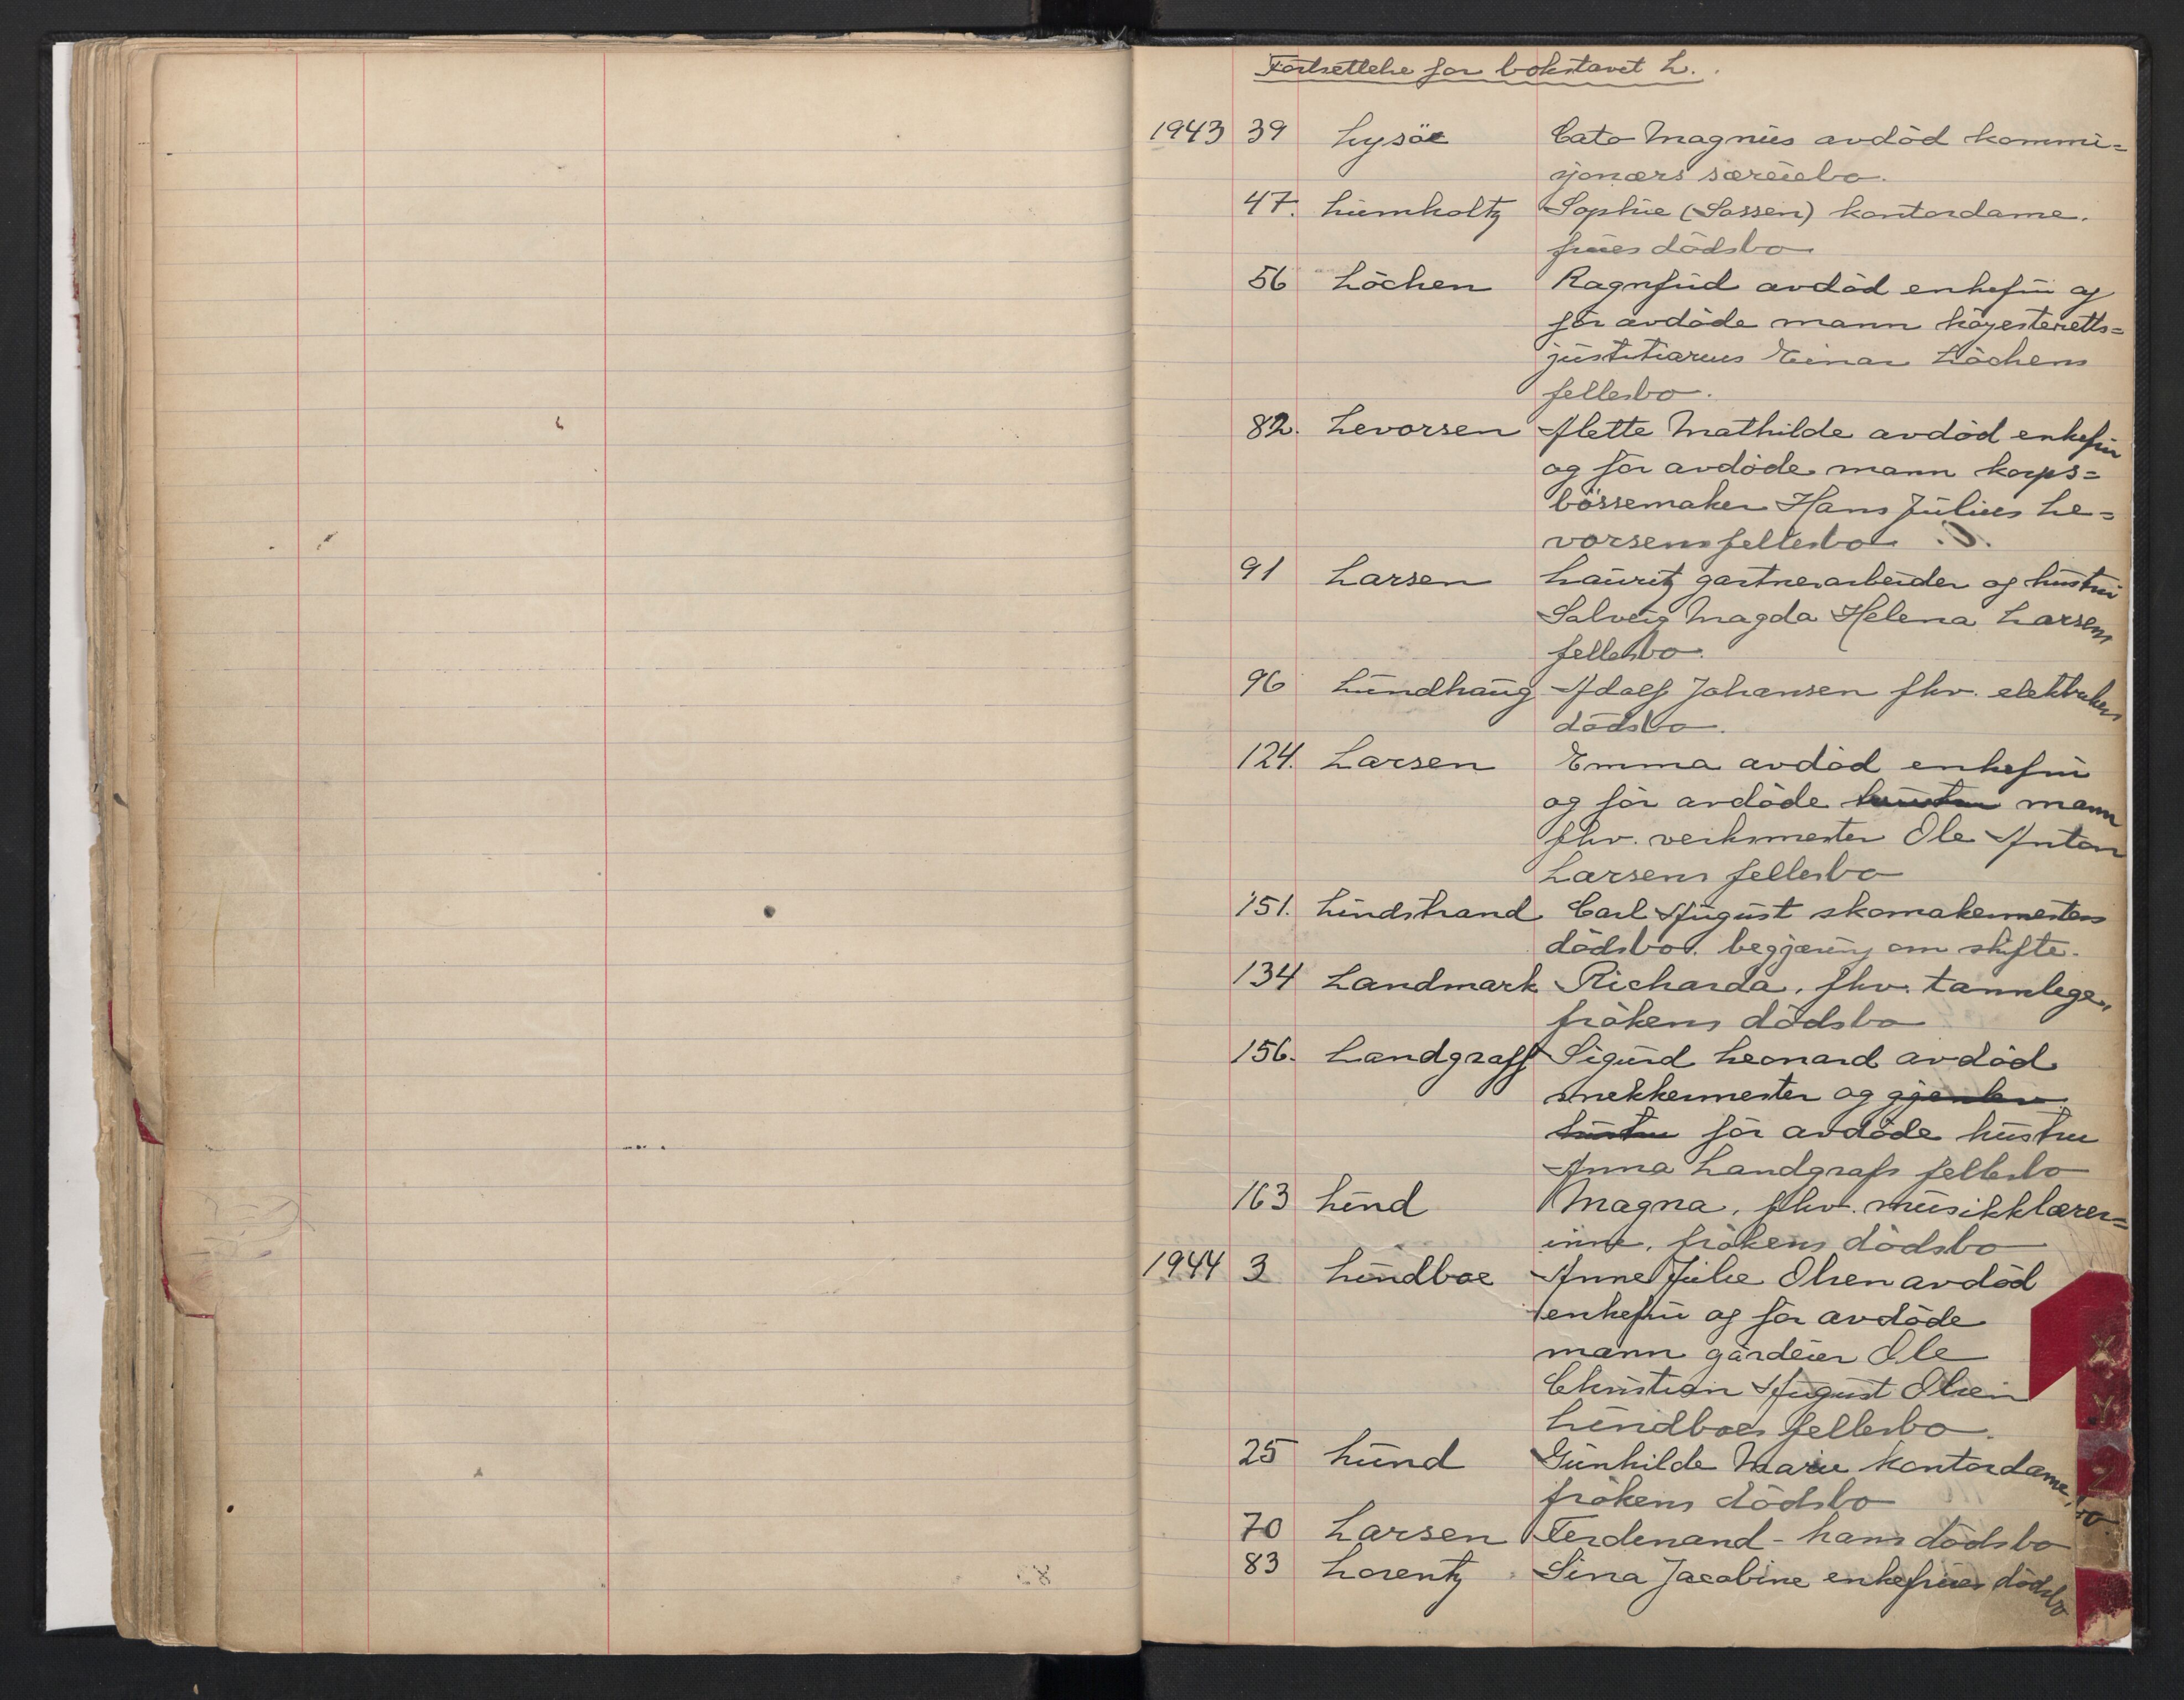 Fortsettelse for bokstavet L.
1943 39 Lysöe Cato Magnus avdöd kommi=
sjonærs særeiebo.
47. Lumholtz Sophie (Sossen) kontordame.
frues dödsbo
56 Löchen Ragnfrid avdöd enkefru og
för avdöde mann höyesteretts=
justitiarius Einar Löchens
fellesbo.
82. Levorsen Alette Mathilde avdöd enkefru
og för avdöde mann korps=
bössemaker Hans Julius Le=
vorsens fellesbo
91 Larsen Lauritz gartnerarbeider og hustru
Solveig Magda Helena Larsens
fellesbo.
96 Lundhaug Adolf Johansen fhv. elektrikers
dödsbo.
124. Larsen Emma avdöd enkefru
og för avdöde hustru mann
fhv. verksmester Ole Anton
Larsens fellesbo
151. Lindstrand Carl August skomakermesters
dödsbo. begjæring om skifte.
134 Landmark Richarda, fhv. tannlege,
frökens dödsbo
156. Landgraff Sigurd Leonard avdöd
snekkermester og gjenlev
hustru för avdöde hustru
Anna Landgrafs fellesbo
163 Lund Magna, fhv. musikklærer=
inne, frökens dödsbo
1944 3 Lundboe Anne Julie Olsen avdöd
enkefru og för avdöde
mann gårdeier Ole
Christian August Olsen
Lundboes fellesbo.
25 Lund Gunhilde Marie kontordame,
frökens dödsbo
70 Larsen Ferdenand - hans dödsbo
83 Lorentz Sina Jacobine enkefrues dödsbo
X
Y